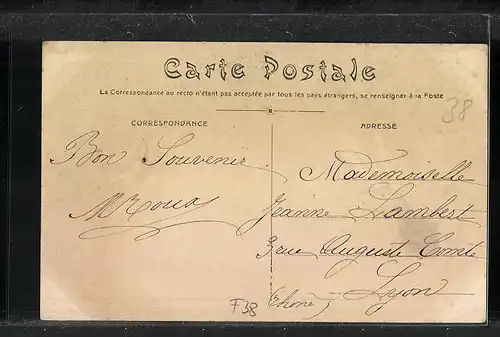 Carte Postale
La Correspondance au recto n'étant pas acceptée par tous les pays étrangers, se renseigner à la Poste
38
CORRESPONDANCE
Bon Souvenir
ADRESSE
Mademoiselle
Jeanne Lambert
3 rue Auguste Comte
Lyon
(Rhône)
F38